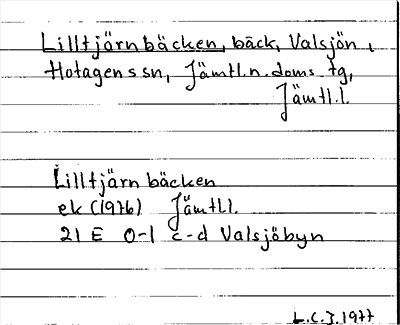 Lilltjärnbäcken, bäck, Valsjön,
Hotagens sn, Jämtl.n. doms tg,
Jämtl.l.
Lilltjärnbäcken
ek (1976) Jämtl.l.
21 E 0-1 c-d Valsjöbyn
L.C.J. 1977